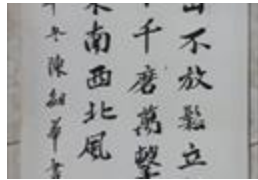 山不放鬆立
千磨萬擊
東南西北風
冬陳
華書